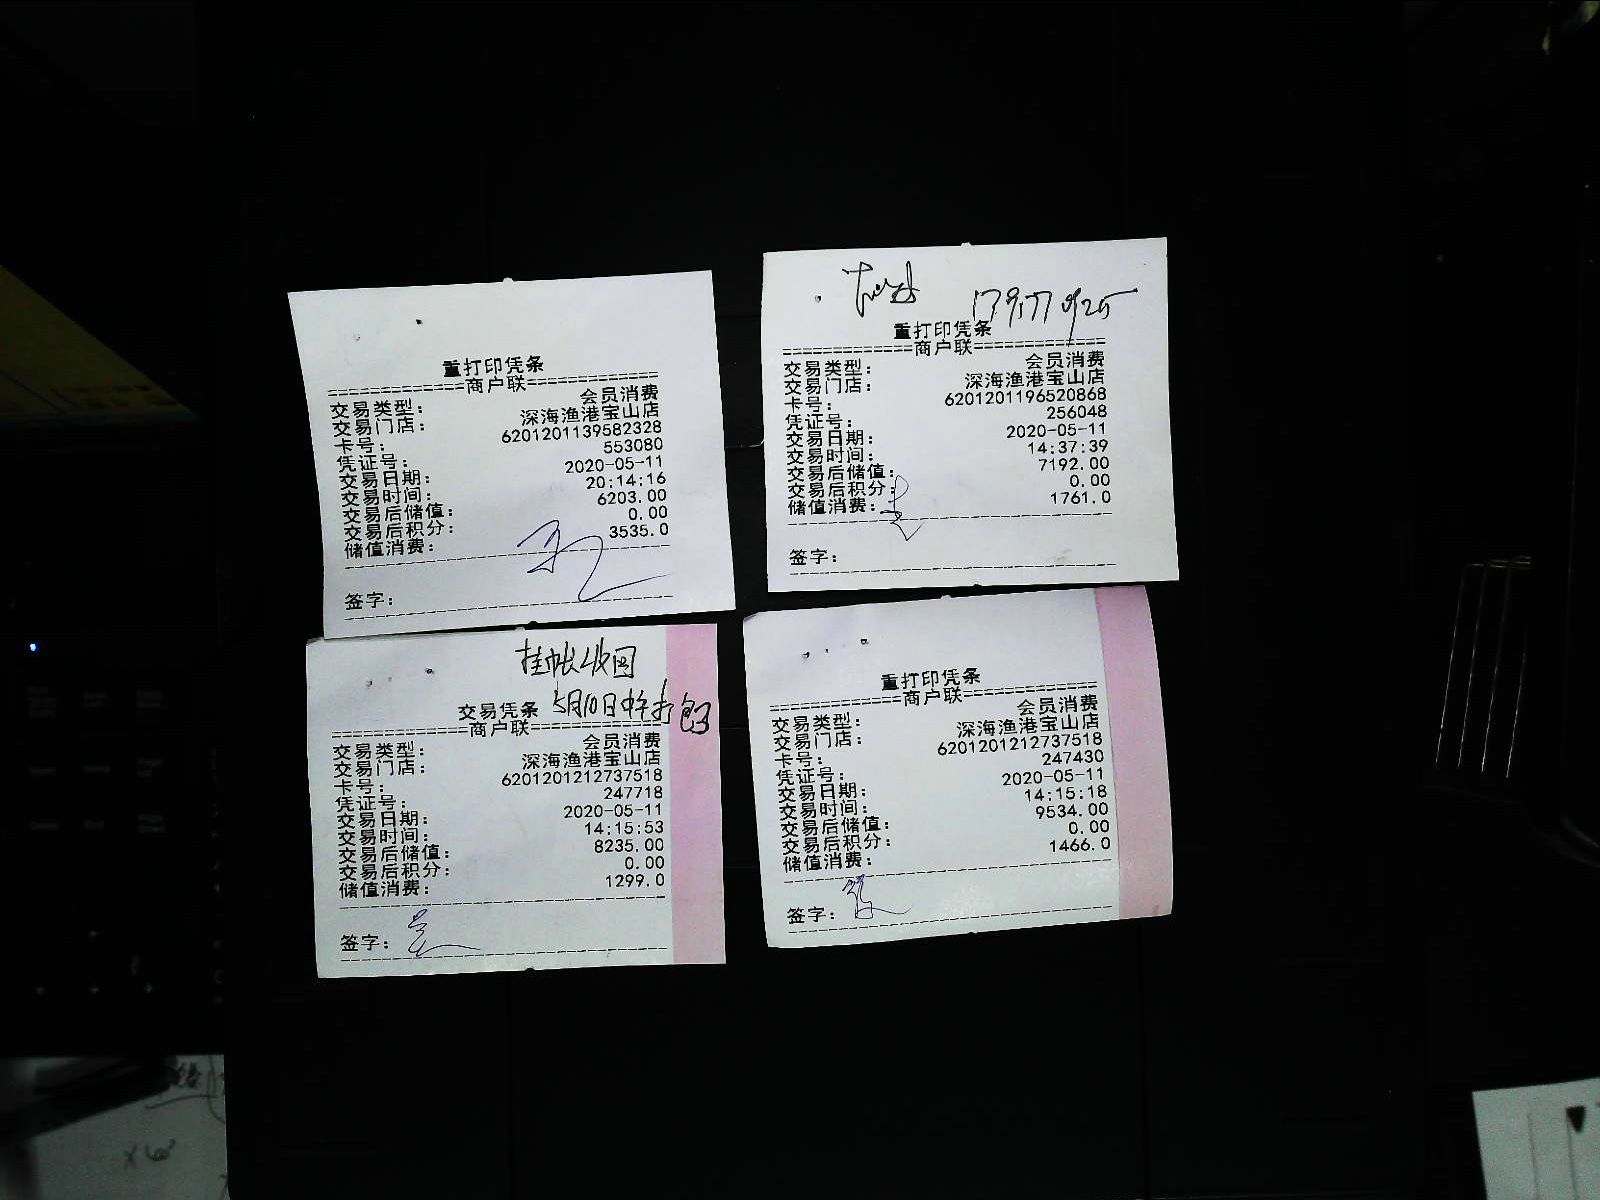 重打印凭条
============商户联============
交易类型: 会员消费
交易门店: 深海渔港宝山店
卡号: 6201201139582328
凭证号: 553080
交易日期: 2020-05-11
交易时间: 20:14:16
交易后储值: 6203.00
交易后积分: 0.00
储值消费: 3535.0
签字:
重打印凭条
============商户联============
交易类型: 会员消费
交易门店: 深海渔港宝山店
卡号: 6201201196520868
凭证号: 256048
交易日期: 2020-05-11
交易时间: 14:37:39
交易后储值: 7192.00
交易后积分: 0.00
储值消费: 1761.0
签字:
挂帐收回
交易凭条 5月10日中午打包了
============商户联============
交易类型: 会员消费
交易门店: 深海渔港宝山店
卡号: 6201201212737518
凭证号: 247718
交易日期: 2020-05-11
交易时间: 14:15:53
交易后储值: 8235.00
交易后积分: 0.00
储值消费: 1299.0
签字:
重打印凭条
============商户联============
交易类型: 会员消费
交易门店: 深海渔港宝山店
卡号: 6201201212737518
凭证号: 247430
交易日期: 2020-05-11
交易时间: 14:15:18
交易后储值: 9534.00
交易后积分: 0.00
储值消费: 1466.0
签字: